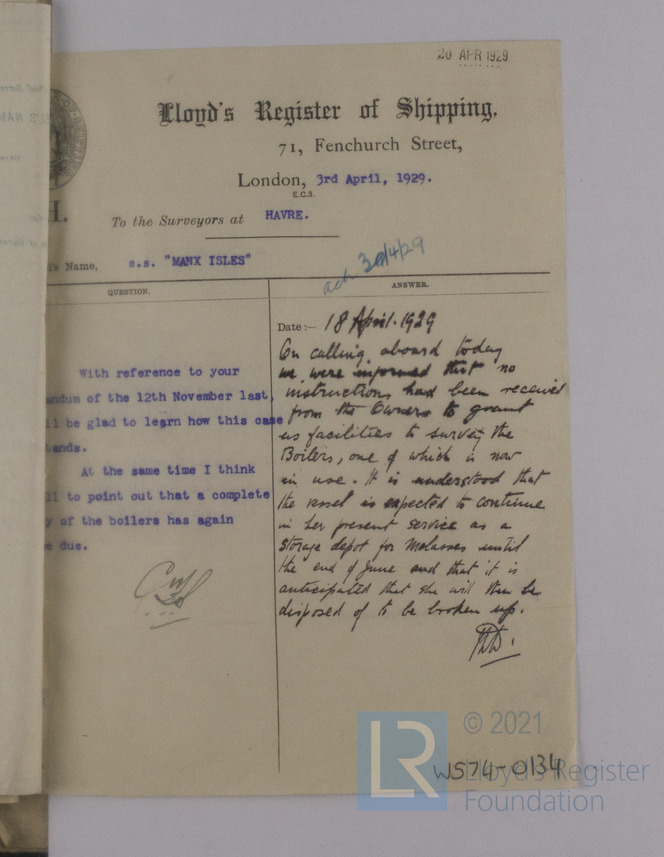 20 APR 1929
Lloyd's Register of Shipping,
71, Fenchurch Street,
London, 3rd April, 1929.
E.C.3.
H.
To the Surveyors at HAVRE.
's Name, s.s. "MANX ISLES"
ack 30/4/29
QUESTION.
With reference to your
andum of the 12th November last,
ll be glad to learn how this case
tands.
At the same time I think
ll to point out that a complete
y of the boilers has again
e due.
ANSWER.
Date:— 18 April. 1929
On calling aboard today
we were informed that no
instructions had been received
from the Owners to grant
us facilities to survey the
Boilers, one of which is now
in use. It is understood that
the vessel is expected to continue
in her present service as a
storage depot for Molasses until
the end of June and that it is
anticipated that she will then be
disposed of to be broken up.
LR
© 2021
Lloyd's Register
Foundation
W574-0134